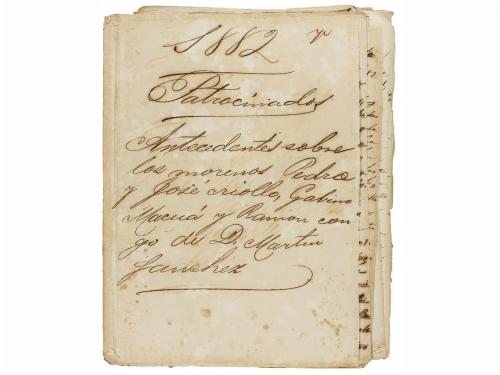 1882
Patrocinados
Antecedentes sobre
los morenos Pedro
y José criollo, Gabino
Macuá y Ramon con
go de D. Martin
Sanchez